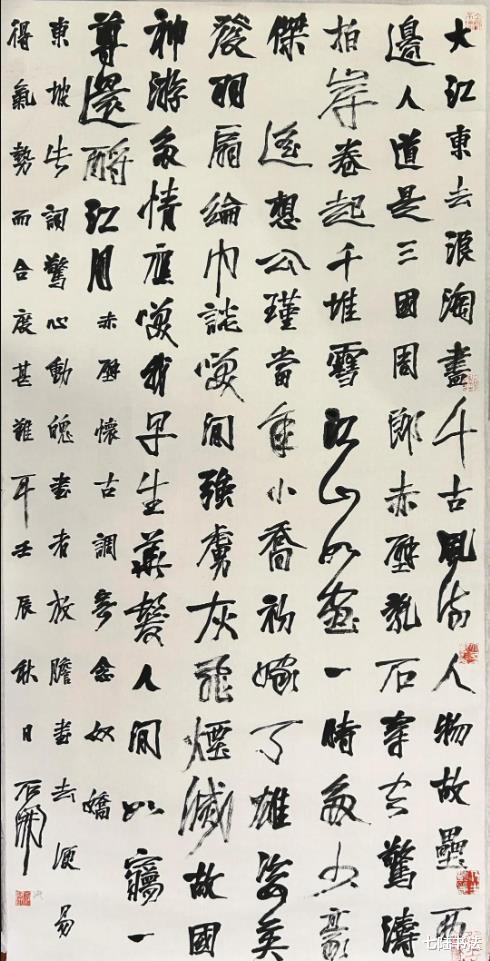 大江東去浪淘盡千古風流人物故壘西
邊人道是三國周郎赤壁亂石穿空驚濤
拍岸卷起千堆雪江山如畫一時多少豪
傑遙想公瑾當年小喬初嫁了雄姿英
發羽扇綸巾談笑間強虜灰飛煙滅故國
神游多情應笑我早生華髮人間如夢一
尊還酹江月赤壁懷古調寄念奴嬌
東坡此詞驚心動魄書者放膽書去便易
得氣勢而合度甚難耳壬辰秋日石開
七陆书法